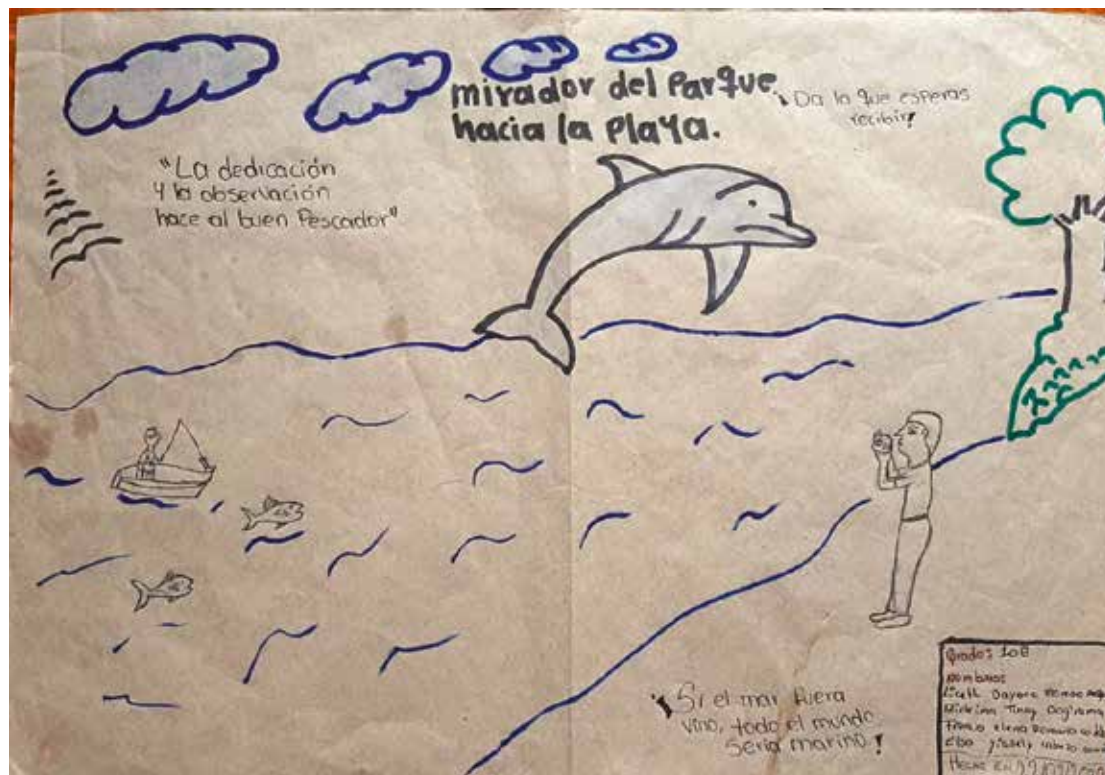 mirador del Parque
hacia la Playa.
¡Da lo que esperas
recibir!
"La dedicación
y la observación
hace al buen Pescador"
¡Si el mar fuera
vino, todo el mundo
seria marino!
Grado: 10B
Nombres
Dayana
Elena